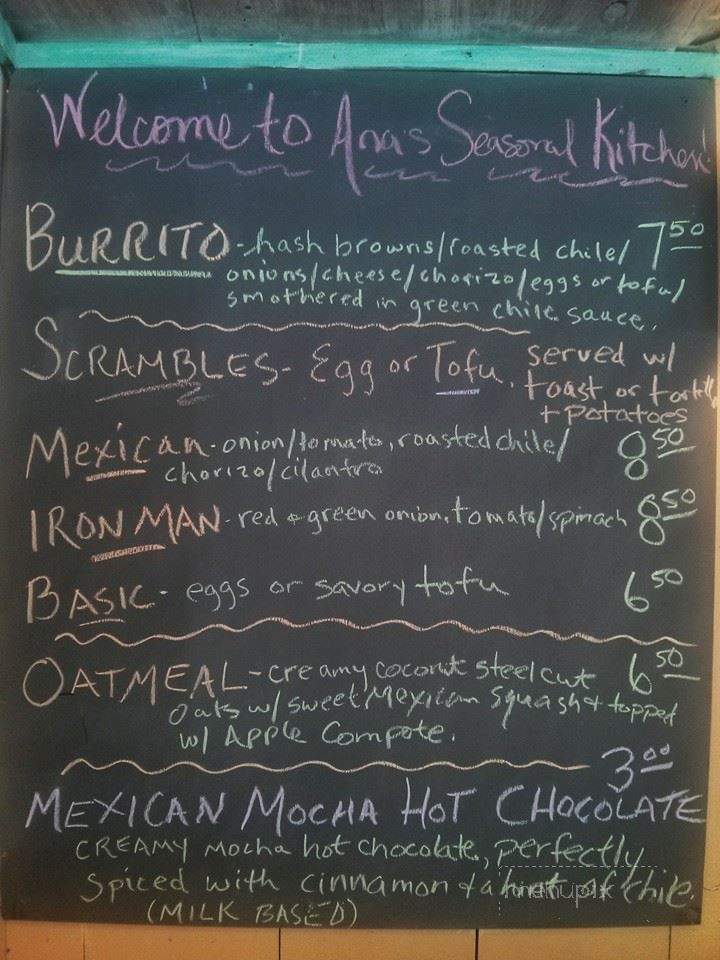 Welcome to Ana's Seasonal Kitchen!
BURRITO - hash browns/roasted chile/ 7.50
onions/cheese/chorizo/eggs or tofu/
smothered in green chile sauce.
SCRAMBLES - Egg or Tofu. served w/
toast or tortilla
+ potatoes
Mexican - onion/tomato, roasted chile/ 8.50
chorizo/cilantro
IRON MAN - red + green onion, tomato/spinach 8.50
BASIC - eggs or savory tofu 6.50
OATMEAL - creamy coconut steel cut 6.50
oats w/ sweet Mexican squash + topped
w/ Apple Compote.
3.00
MEXICAN MOCHA HOT CHOCOLATE
CREAMY Mocha hot chocolate, perfectly
spiced with cinnamon + a hint of chile.
(MILK BASED)
menupix